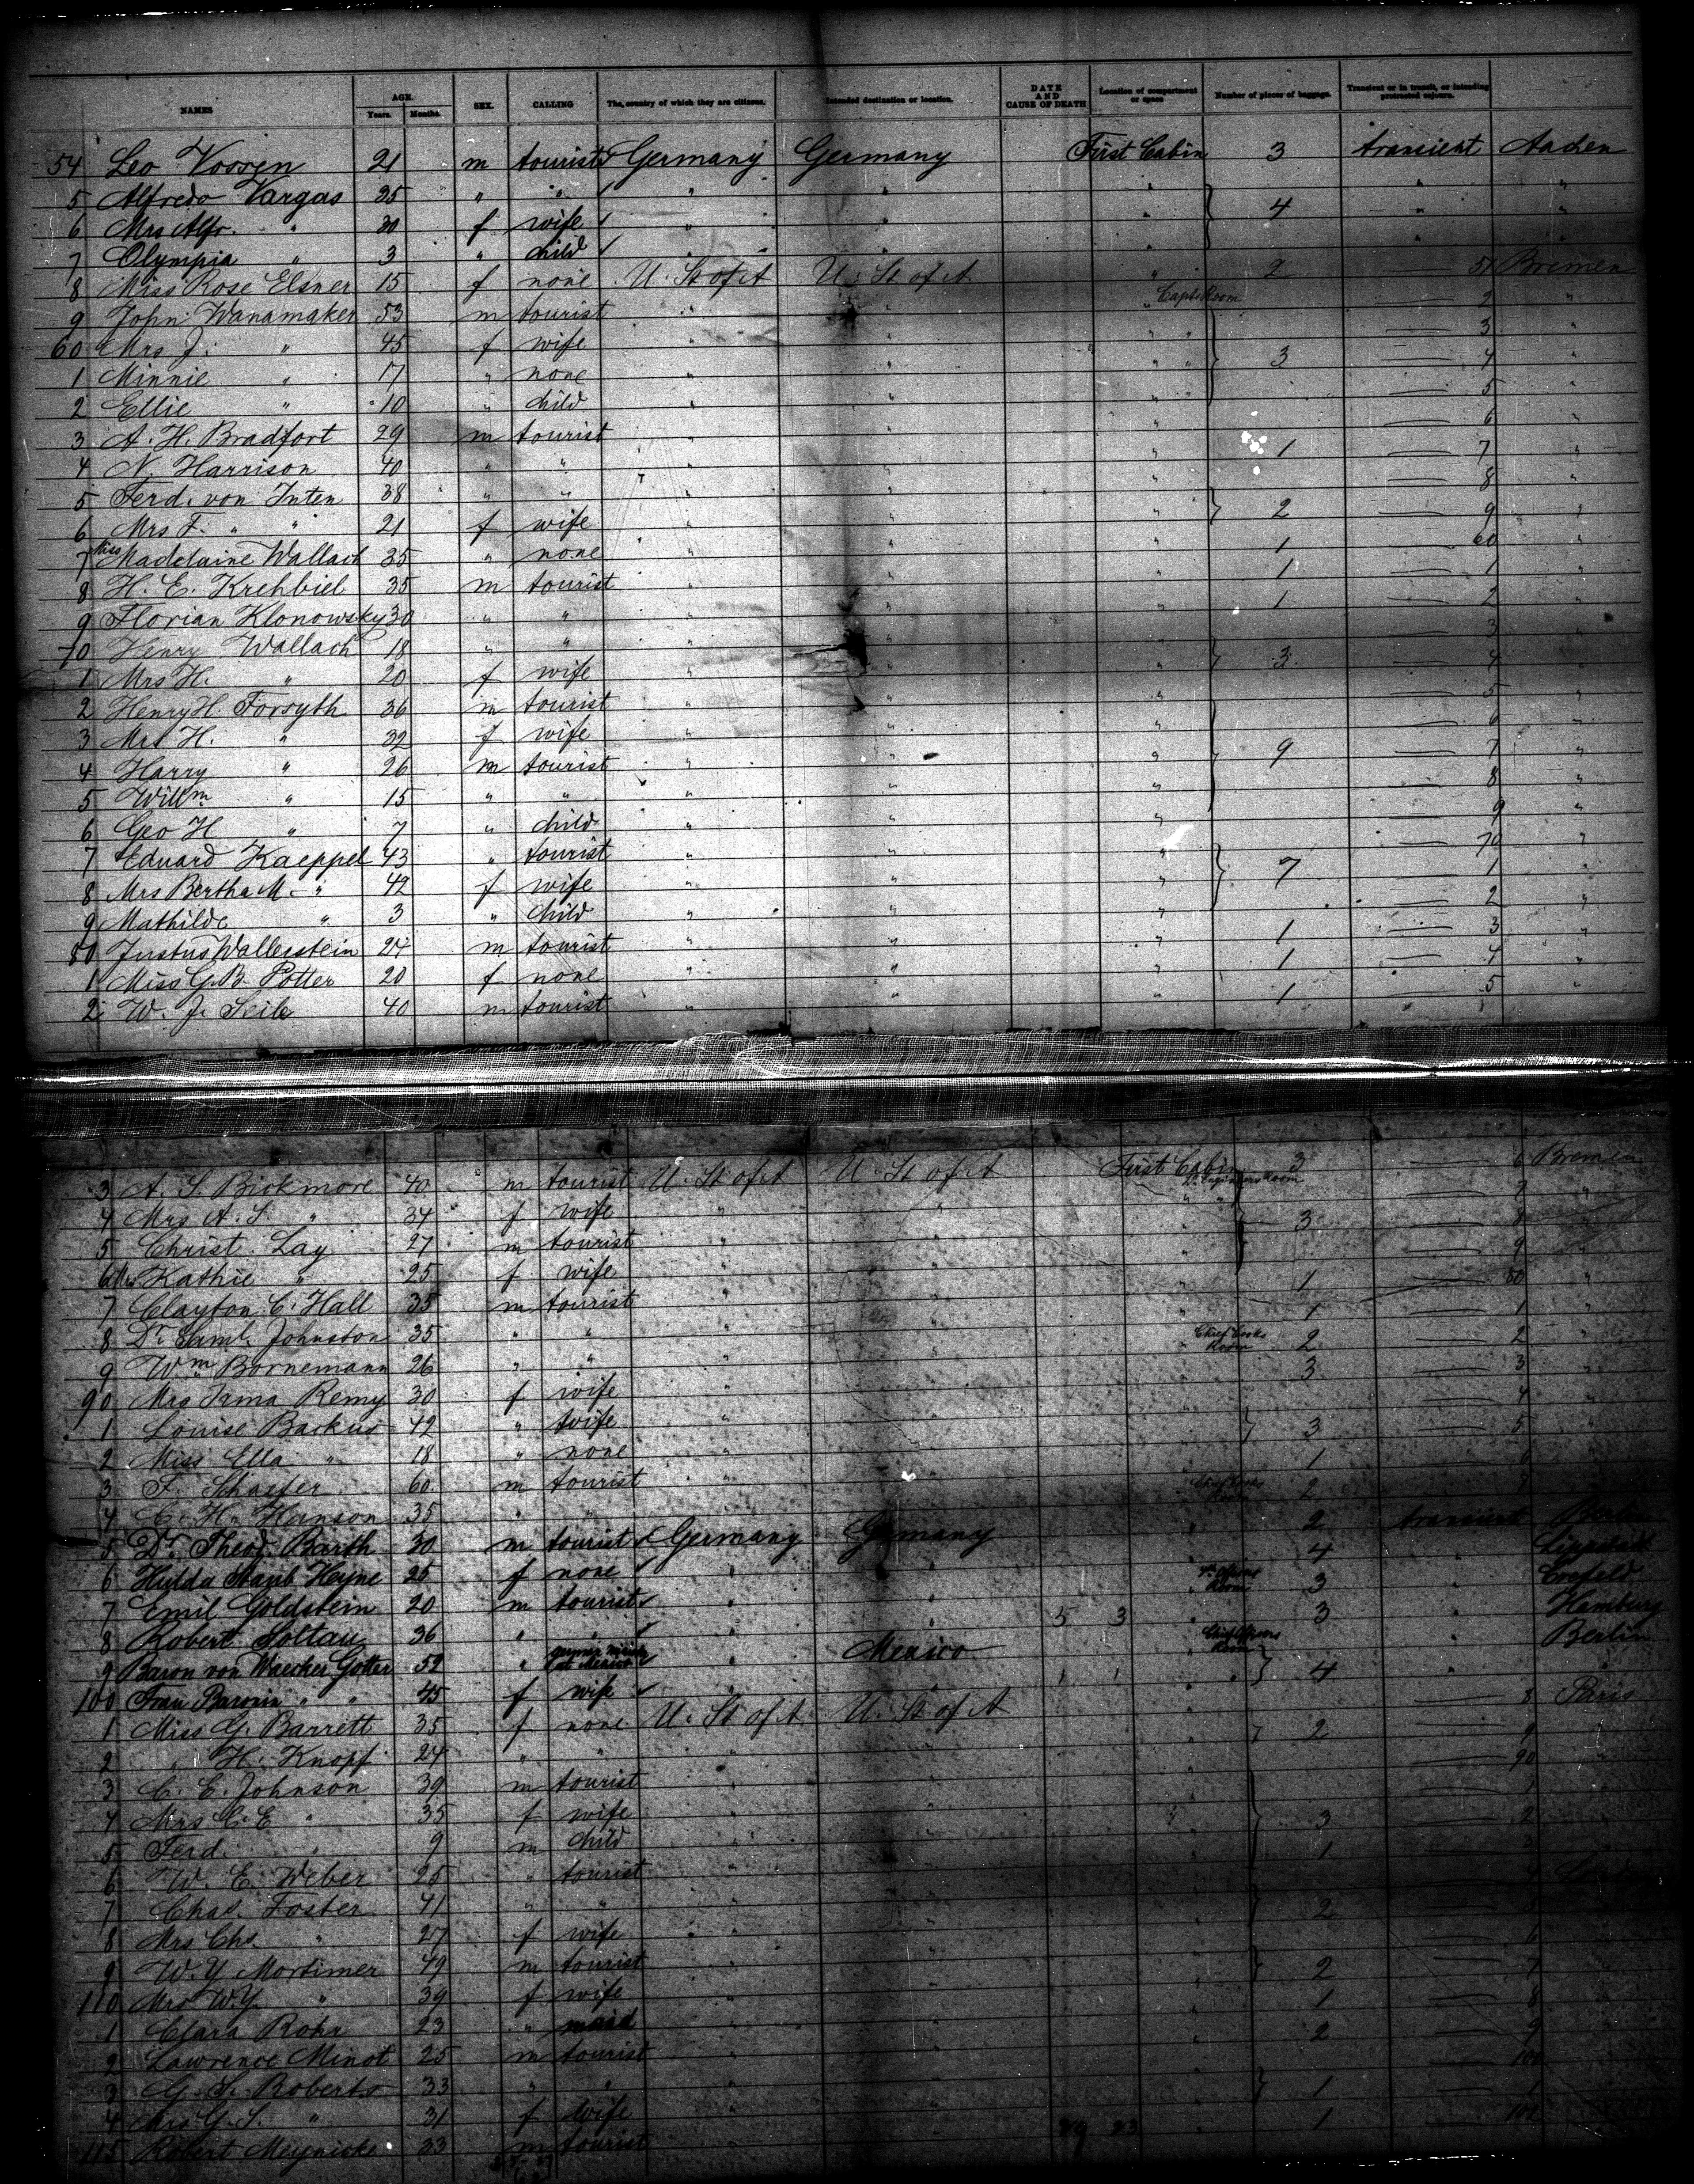 NAMES AGE. Years. Months. SEX. CALLING The, country of which they are citizens. Intended destination or location. DATE AND CAUSE OF DEATH Location of compartment or space Number of pieces of baggage. Transient or in transit, or intending protracted sojourn.
54 Leo Vossen 21 m tourist Germany Germany First Cabin 3 transient Aachen
5 Alfredo Vargas 25 " " " " " " "
6 Mrs Alfr. " 30 f wife " " " 4 " "
7 Olympia " 3 " child " " " " "
8 Miss Rose Elsner 15 f none U. St of A U. St of A " 2 — 51 Bremen
9 John Wanamaker 53 m tourist " " " Capts Room — 2 "
60 Mrs J. " 45 f wife " " " " — 3 "
1 Minnie " 17 " none " " " " 3 — 4 "
2 Ellie " 10 " child " " " — 5 "
3 A. H. Bradfort 29 m tourist " " " — 6 "
4 N. Harrison 40 " " " " " 1 — 7 "
5 Ferd. von Inten 38 " " " " " — 8 "
6 Mrs F. " " 21 f wife " " " 2 — 9 "
7 Miss Madelaine Wallach 35 " none " " " 1 — 60 "
8 H. E. Krehbiel 35 m tourist " " " 1 — 1 "
9 Florian Klonowsky 30 " " " " " 1 — 2 "
70 Henry Wallach 18 " " " " " — 3 "
1 Mrs H. " 20 f wife " " " 3 — 4 "
2 Henry H. Forsyth 36 m tourist " " " — 5 "
3 Mrs H. " 32 f wife " " " — 6 "
4 Harry " 26 m tourist " " " 9 — 7 "
5 Willm " 15 " " " " " — 8 "
6 Geo H " 7 " child " " " — 9 "
7 Eduard Kaeppel 43 " tourist " " " — 70 "
8 Mrs Bertha M. " 42 f wife " " " 7 — 1 "
9 Mathilde " 3 " child " " " — 2 "
80 Justus Wallerstein 24 m tourist " " " 1 — 3 "
1 Miss G. B. Potter 20 f none " " " 1 — 4 "
2 W. J. Seib 40 m tourist " " " 1 — 5 "
3 A. S. Bickmore 40 m tourist U. St of A U. St of A First Cabin 3 — 6 Bremen
4 Mrs A. S. " 34 f wife " " " " — 7 "
5 Christ. Lay 27 m tourist " " " 3 — 8 "
6 Mrs Kathie " 25 f wife " " " — 9 "
7 Clayton C. Hall 35 m tourist " " " 1 — 80 "
8 Dr. Saml. Johnston 35 " " " " " 1 — 1 "
9 Wm Bornemann 26 " " " " " Chief Cooks Room 2 — 2 "
90 Mrs Irma Remy 30 f wife " " " 3 — 3 "
1 Louise Backus 42 " wife " " " — 4 "
2 Miss Ella " 18 " none " " " 3 — 5 "
3 F. Schaefer 60 m tourist " " " 1 — 6 "
4 C. H. Hanson 35 " " " " " Chief Cooks Room 2 — 7 "
5 Dr. Theod. Barth 30 m tourist Germany Germany " 2 transient Berlin
6 Hulda Staub Heyne 25 f none " " " 4 "
7 Emil Goldstein 20 m tourist " " " Room 3 " Crefeld
8 Robert Soltau 36 " " " " 5 3 " 3 " Hamburg
9 Baron von Waecker Gotter 52 " " Mexico Room " Berlin
100 Frau Baronin " " 45 f wife " " 1 1 " 4 " "
1 Miss G. Barrett 35 f none U. St of A U. St of A " — 8 Paris
2 " H. Knopf 24 " " " " " 2 — 9 "
3 C. E. Johnson 39 m tourist " " " — 90 "
4 Mrs C. E " 35 f wife " " " — 1 "
5 Ferd. " 9 m child " " " 3 — 2 "
6 W. E. Weber 25 " tourist " " " 1 — 3 "
7 Chas. Foster 41 " " " " " — 4
8 Mrs Chs. " 27 f wife " " " 2 — 5 "
9 W. Y. Mortimer 49 m tourist " " " — 6 "
110 Mrs W. Y. " 39 f wife " " " 2 — 7 "
1 Clara Rohr 23 " maid " " " 1 — 8 "
2 Lawrence Minot 25 m tourist " " " 2 — 9 "
3 G. S. Roberts 33 " " " " " — 100 "
4 Mrs G. S. " 31 f wife " " " 1 — 1 "
115 Robert Meynicke 33 m tourist " " 1 — 102